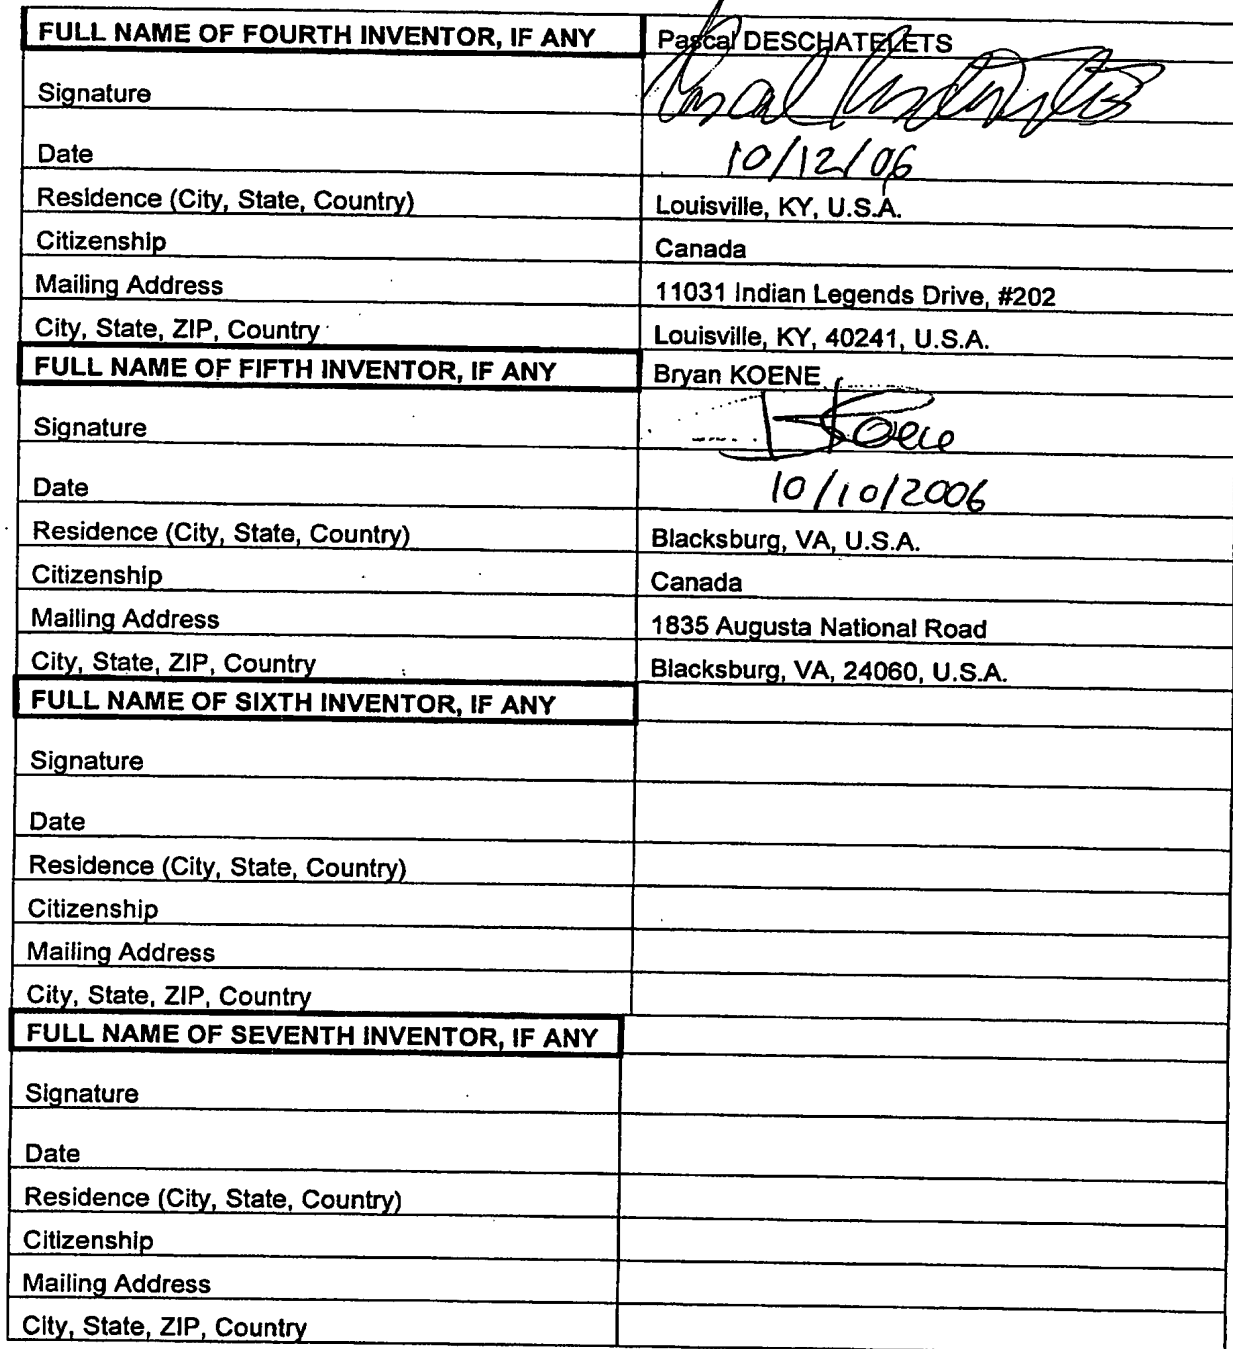 FULL NAME OF FOURTH INVENTOR, IF ANY Pascal DESCHATELETS
Signature Pascal Deschatelets
Date 10/12/06
Residence (City, State, Country) Louisville, KY, U.S.A.
Citizenship Canada
Mailing Address 11031 Indian Legends Drive, #202
City, State, ZIP, Country Louisville, KY, 40241, U.S.A.
FULL NAME OF FIFTH INVENTOR, IF ANY Bryan KOENE
Signature B Koene
Date 10/10/2006
Residence (City, State, Country) Blacksburg, VA, U.S.A.
Citizenship Canada
Mailing Address 1835 Augusta National Road
City, State, ZIP, Country Blacksburg, VA, 24060, U.S.A.
FULL NAME OF SIXTH INVENTOR, IF ANY
Signature
Date
Residence (City, State, Country)
Citizenship
Mailing Address
City, State, ZIP, Country
FULL NAME OF SEVENTH INVENTOR, IF ANY
Signature
Date
Residence (City, State, Country)
Citizenship
Mailing Address
City, State, ZIP, Country